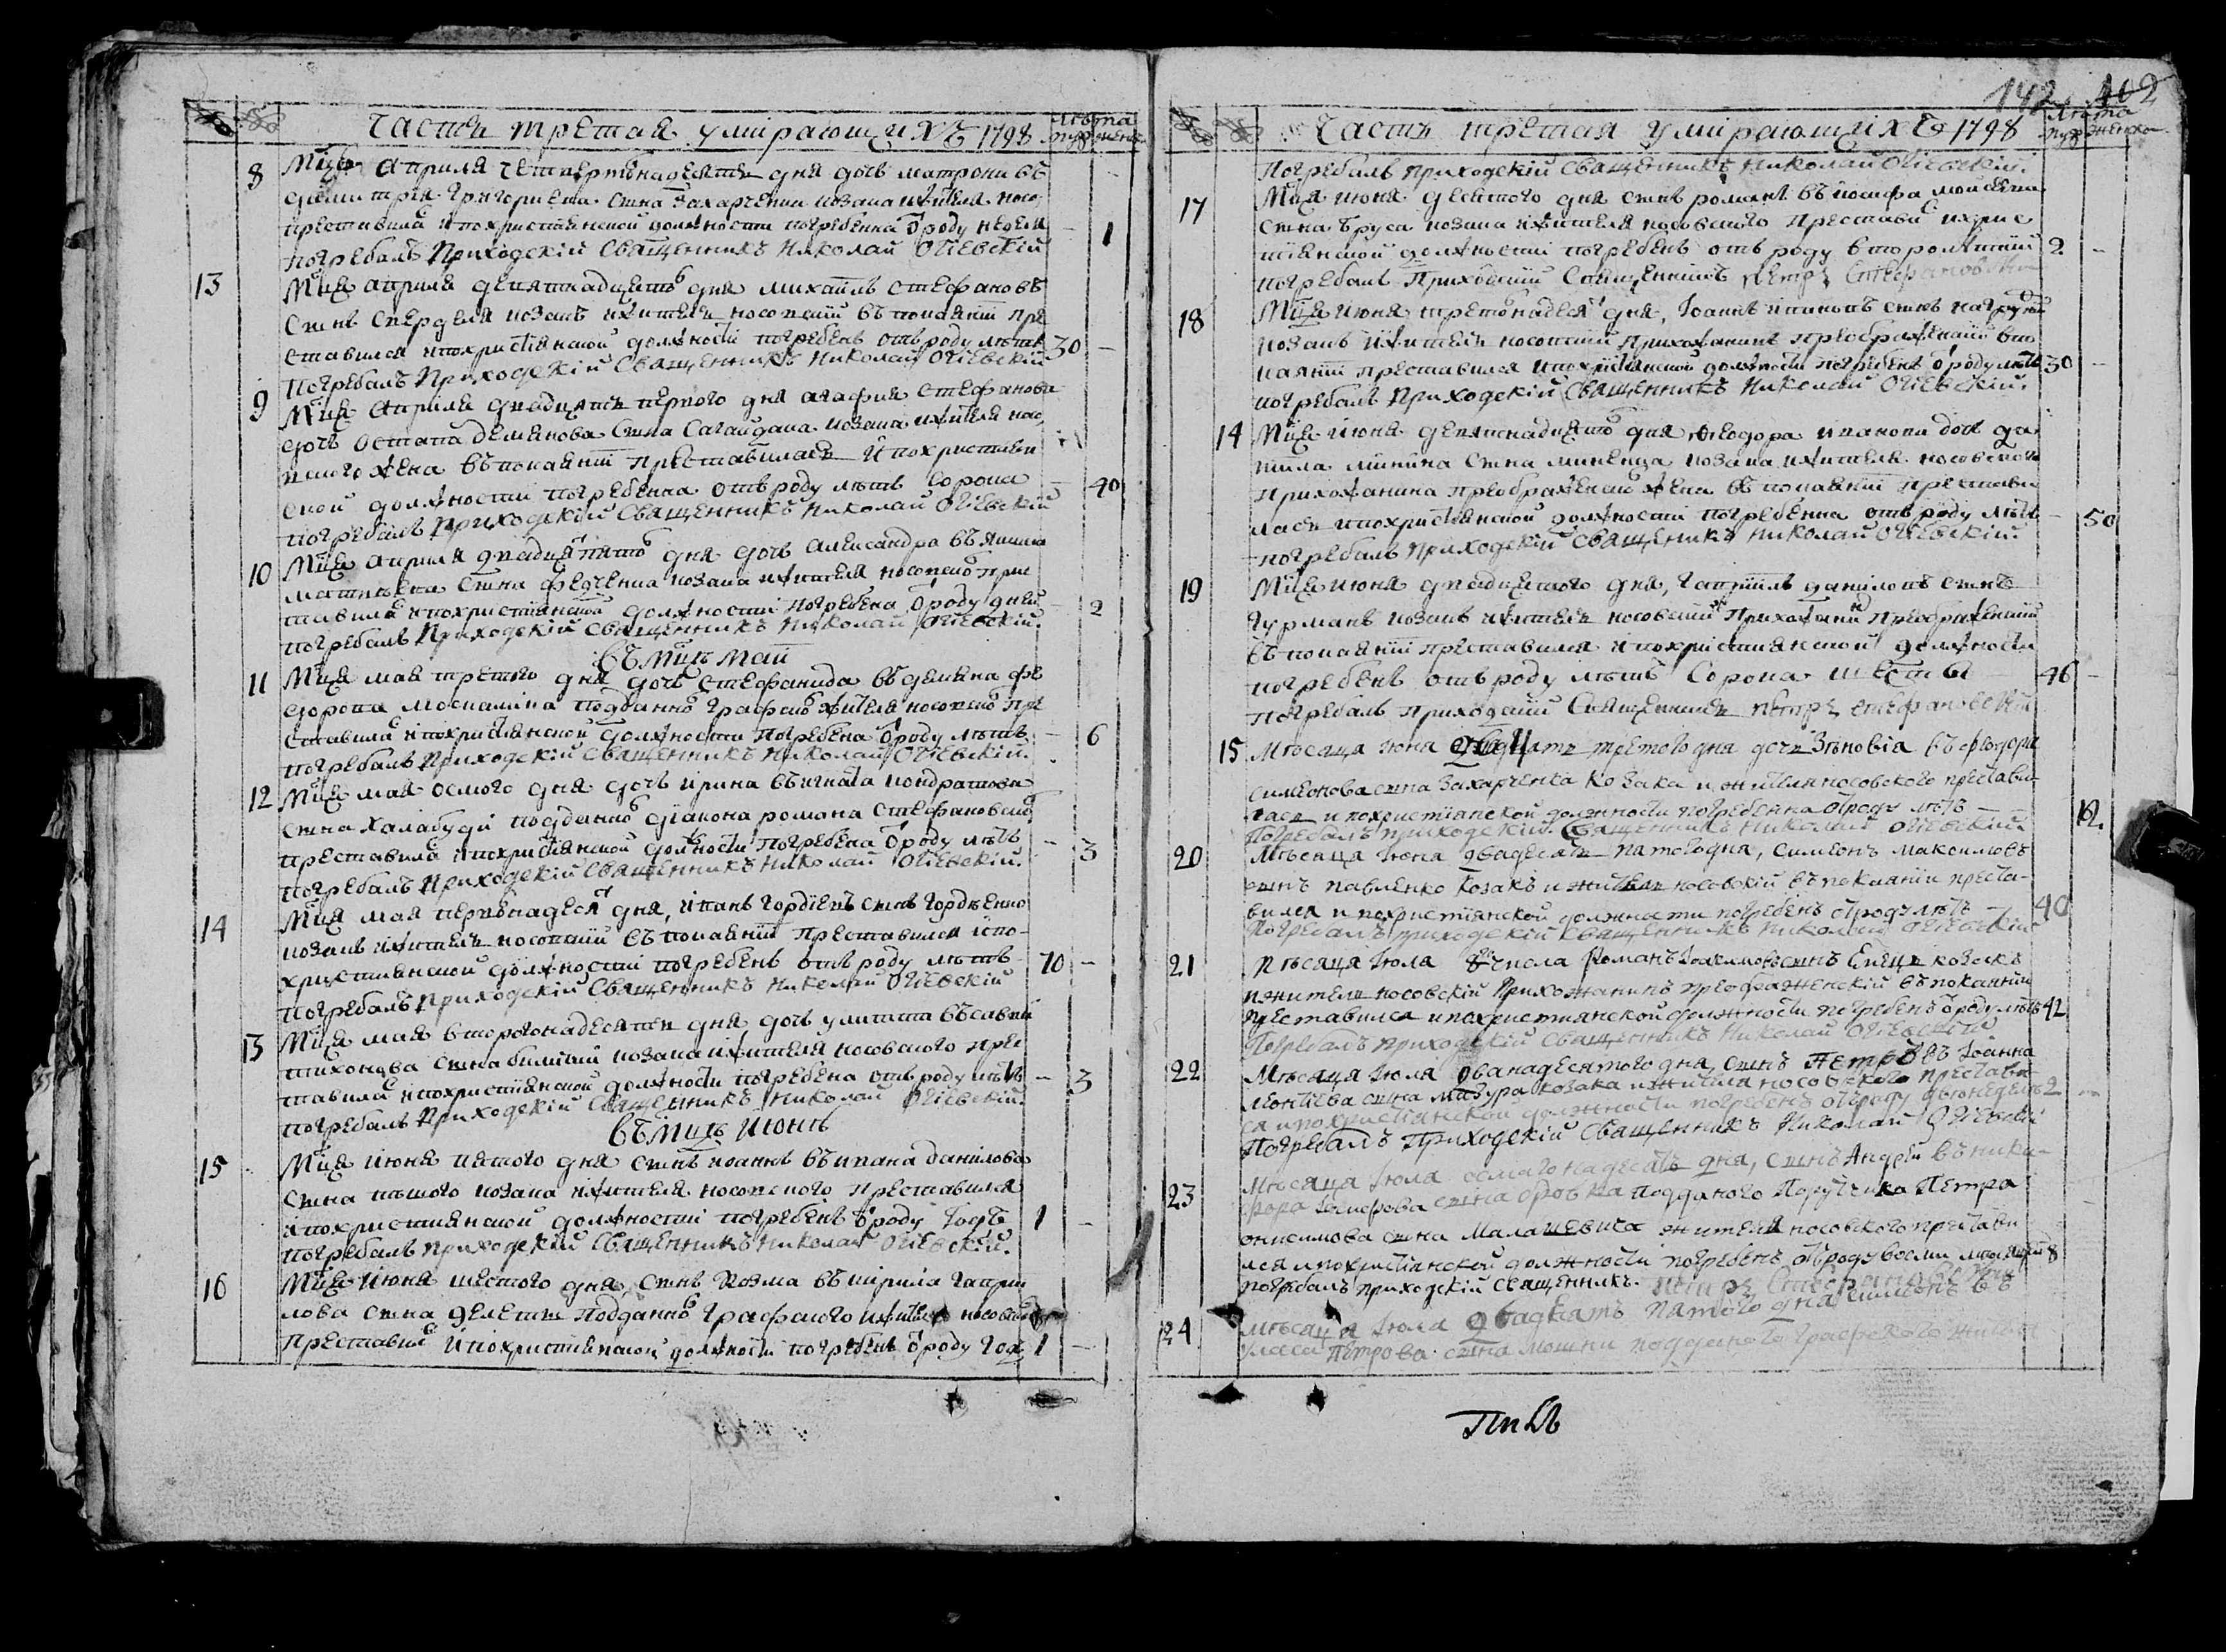 Часть третая умирающихъ 1798
Лѣта
муж женс
8 Мца Априля четвертонадесять дня дочь матрона въ
димитрия Григориева сина Захарченка козака жителя носо
преставис и похристіянской должности погребенна ѿ роду неделя - 1
погребалъ Приходскій Священникъ Николай Огіевскій
13 Мца априля девятнадцято дня михаилъ стефановъ
синъ козакъ и житель носовскій въ покаяніи пре
ставился и похристіянской должности погребенъ отъ роду лѣтъ 30 -
Погребалъ Приходскій Священникъ Николай Огіевскій
9 Мца Априля двадцять первого дня агафия стефанова
дочь остапа демянова сина Сагайдака козака жителя носо
вского жена въ покаяніи преставилась и похристиян
ской должности погребенна отъ роду лѣтъ сорока - 40
погребалъ Приходскій Священникъ Николай Огіевскій
10 Мца априля двадцятпято дня дочь Александра въ
матвѣева сина Федченка козака жителя носовско прес
тавис и похристіянской должности погребена ѿ роду дней - 2
погребалъ Приходскій Священникъ Николай Огіевскій.
въ мцѣ маи
11 Мца мая третего дня дочь стефанида въ демяна фе
дорова москалика подданно графско жителя носовско пре
ставис и похристіянской должности погребена ѿ роду лѣтъ - 6
погребалъ Приходскій Священникъ Николай Огіевскій.
12 Мца мая осмого дня дочь ирина въ игната кондратова
сина Халабуди подданно діакона романа стефановско
преставис и похристіянской должности погребена ѿ роду лѣтъ - 3
погребалъ Приходскій Священникъ Николай Огіевскій.
14 Мца мая первонадесят дня, иванъ гордіевъ синъ гордѣенко
козакъ и житель носовскій въ покаяніи преставился и по-
християнской должности погребенъ отъ роду лѣтъ 70 -
погребалъ Приходскій Священникъ Николай Огіевскій
13 Мца мая второгонадесяти дня дочь улита въ савви
тихонова сина козака и жителя носовского прес
тавис и похристіянской должности погребена отъ роду лѣтъ - 3
погребалъ Приходскій Священникъ Николай Огіевскій.
въ мцѣ июнѣ
15 Мца июня пятого дня синъ иоаннъ въ ивана данилова
сина козака жителя носовского преставился
и похристиянской должности погребенъ ѿ роду годъ 1 -
погребалъ приходскій Священникъ Николай Огіевскій.
16 Мца июня шестого дня, синъ Козма въ кирила гаври
лова сина подданно графского жителя носовско
преставис и похристиянской должности погребенъ ѿ роду год 1 -
142 102
Часть третая умирающихъ 1798
Лѣта
муж женска
Погребалъ приходскій Священникъ Николай Огіевскій.
17 Мца июня десятого дня синъ романъ въ иосифа мойсеева
сина Бруса козака и жителя носовского преставис и хрис
тіянской должности погребенъ отъ роду второлѣтній 2 -
погребалъ Приходскій Священникъ Петръ Стефановскій
18 Мца июня третонадесят дня, Іоаннъ ивановъ синъ
козакъ и житель носовскій прихожанинъ преображенскій въ по
каяніи преставился и похристіянской должности погребенъ ѿ роду лѣтъ 30 -
погребалъ Приходскій Священникъ Николай Огіевскій.
14 Мца июня девятнадцято дня феодора иванова дочь да
нила минина сина миненка козака и жителя носовского
прихожанина преображенской жена въ покаяніи престави
лась и похристіянской должности погребенна отъ роду лѣтъ - 50
погребалъ Приходскій Священникъ Николай Огіевскій.
19 Мца июня двадцятого дня, гавріилъ даниловъ синъ
гурманъ козакъ и житель носовскій Прихожанин Преображенскій
въ покаяніи преставился и похристиянской должности
погребенъ отъ роду лѣтъ сорока шесты 46 -
погребалъ приходскій Священникъ петръ стефановскій
15 Мѣсяца июня двадцать третого дня дочь Зѣновіа въ феодора
симеонова сина Захарченка козака и жителя носовского престави-
лась и похристіянской должности погребена ѿ роду лѣтъ — 12.
Погребалъ приходскій Священникъ Николай Огіевскій.
20 Мѣсяца июня двадесять пятого дня, симеонъ максимовъ
синъ павленко козакъ и житель носовскій въ покаяніи преста-
вился и похристіянской должности погребенъ ѿ роду лѣтъ — 40
Погребалъ приходскій Священникъ Николай Огіевскій
21 Мѣсяца Июла числа Романъ Іоакимовъ синъ козакъ
и житель носовскій прихожанинъ преображенскій въ покаяніи
преставился и похристиянской должности погребенъ ѿ роду лѣтъ 42
Погребалъ приходскій Священникъ Николай Огіевскій
22 Мѣсяца Июля дванадесятого дня, синъ Петръ въ Іоанна
леонтиева сина мазура козака и жителя носовского преставил
ся и похристіянской должности погребенъ ѿ роду двонеделъ 2 -
Погребалъ Приходскій Священникъ Николай Огіевскій
23 Мѣсяца Июла осмагонадесять дня, синъ Андрей въ ники-
фора сина подданого Поручика Петра
онисимова сина Малашевича жителя носовского престави
лся и похристіянской должности погребенъ ѿ роду восми мѣсяцей 8
погребалъ приходскій священникъ. петръ Стефановскій
24 Мѣсяца Июла двадцать пятого дня симеонъ въ
Петрова сина мошни подданого графского жителя